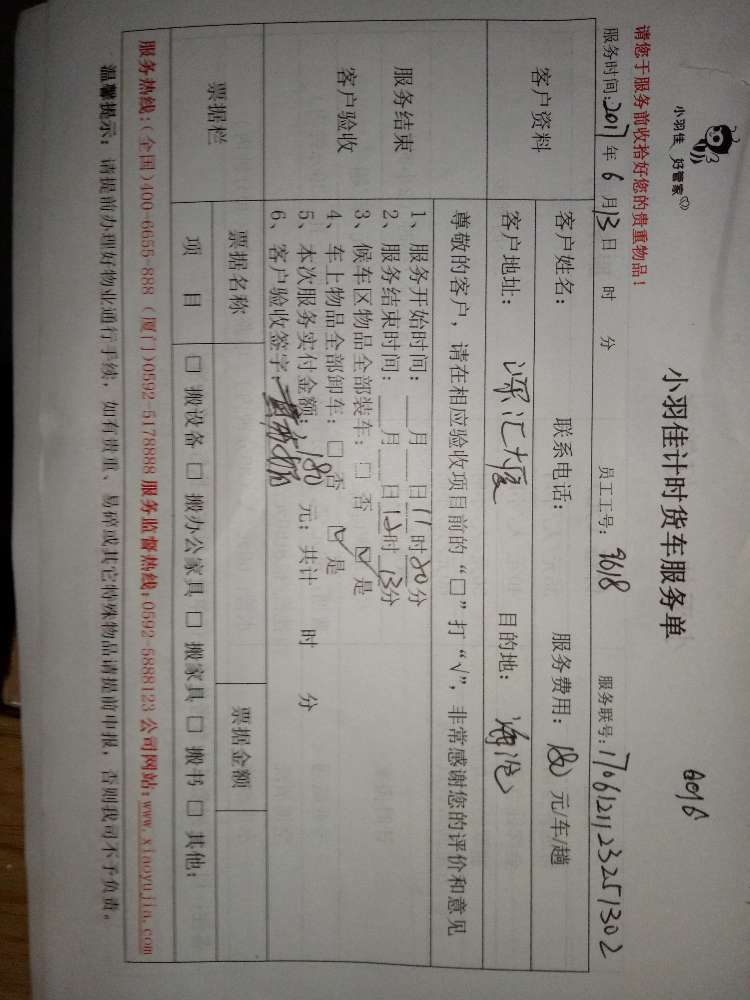 小羽佳 好管家
小羽佳计时货车服务单
6016
请您于服务前收拾好您的贵重物品！
服务时间:2017年6月13日 时 分 员工工号: 9618 服务联号:1706121123251302
客户资料
客户姓名: 联系电话: 服务费用: 180 元/车/趟
客户地址: 深汇大厦 目的地: 海沧
服务结束
客户验收
尊敬的客户，请在相应验收项目前的“□”打“√”，非常感谢您的评价和意见
1、服务开始时间: 月 日11时20分
2、服务结束时间: 月 日12时13分
3、候车区物品全部装车: □ 否 ☑ 是
4、车上物品全部卸车: □ 否 ☑ 是
5、本次服务实付金额: 180 元; 共计 时 分
6、客户验收签字:
票据栏
票据名称 票据金额
项 目 □ 搬设备 □ 搬办公家具 □ 搬家具 □ 搬书 □ 其他:
服务热线:(全国)400-6655-888 (厦门)0592-5178888 服务监督热线:0592-5888123 公司网站:www.xiaoyujia.com
温馨提示: 请提前办理好物业通行手续，如有贵重、易碎或其它特殊物品请提前申报，否则我司不予负责。